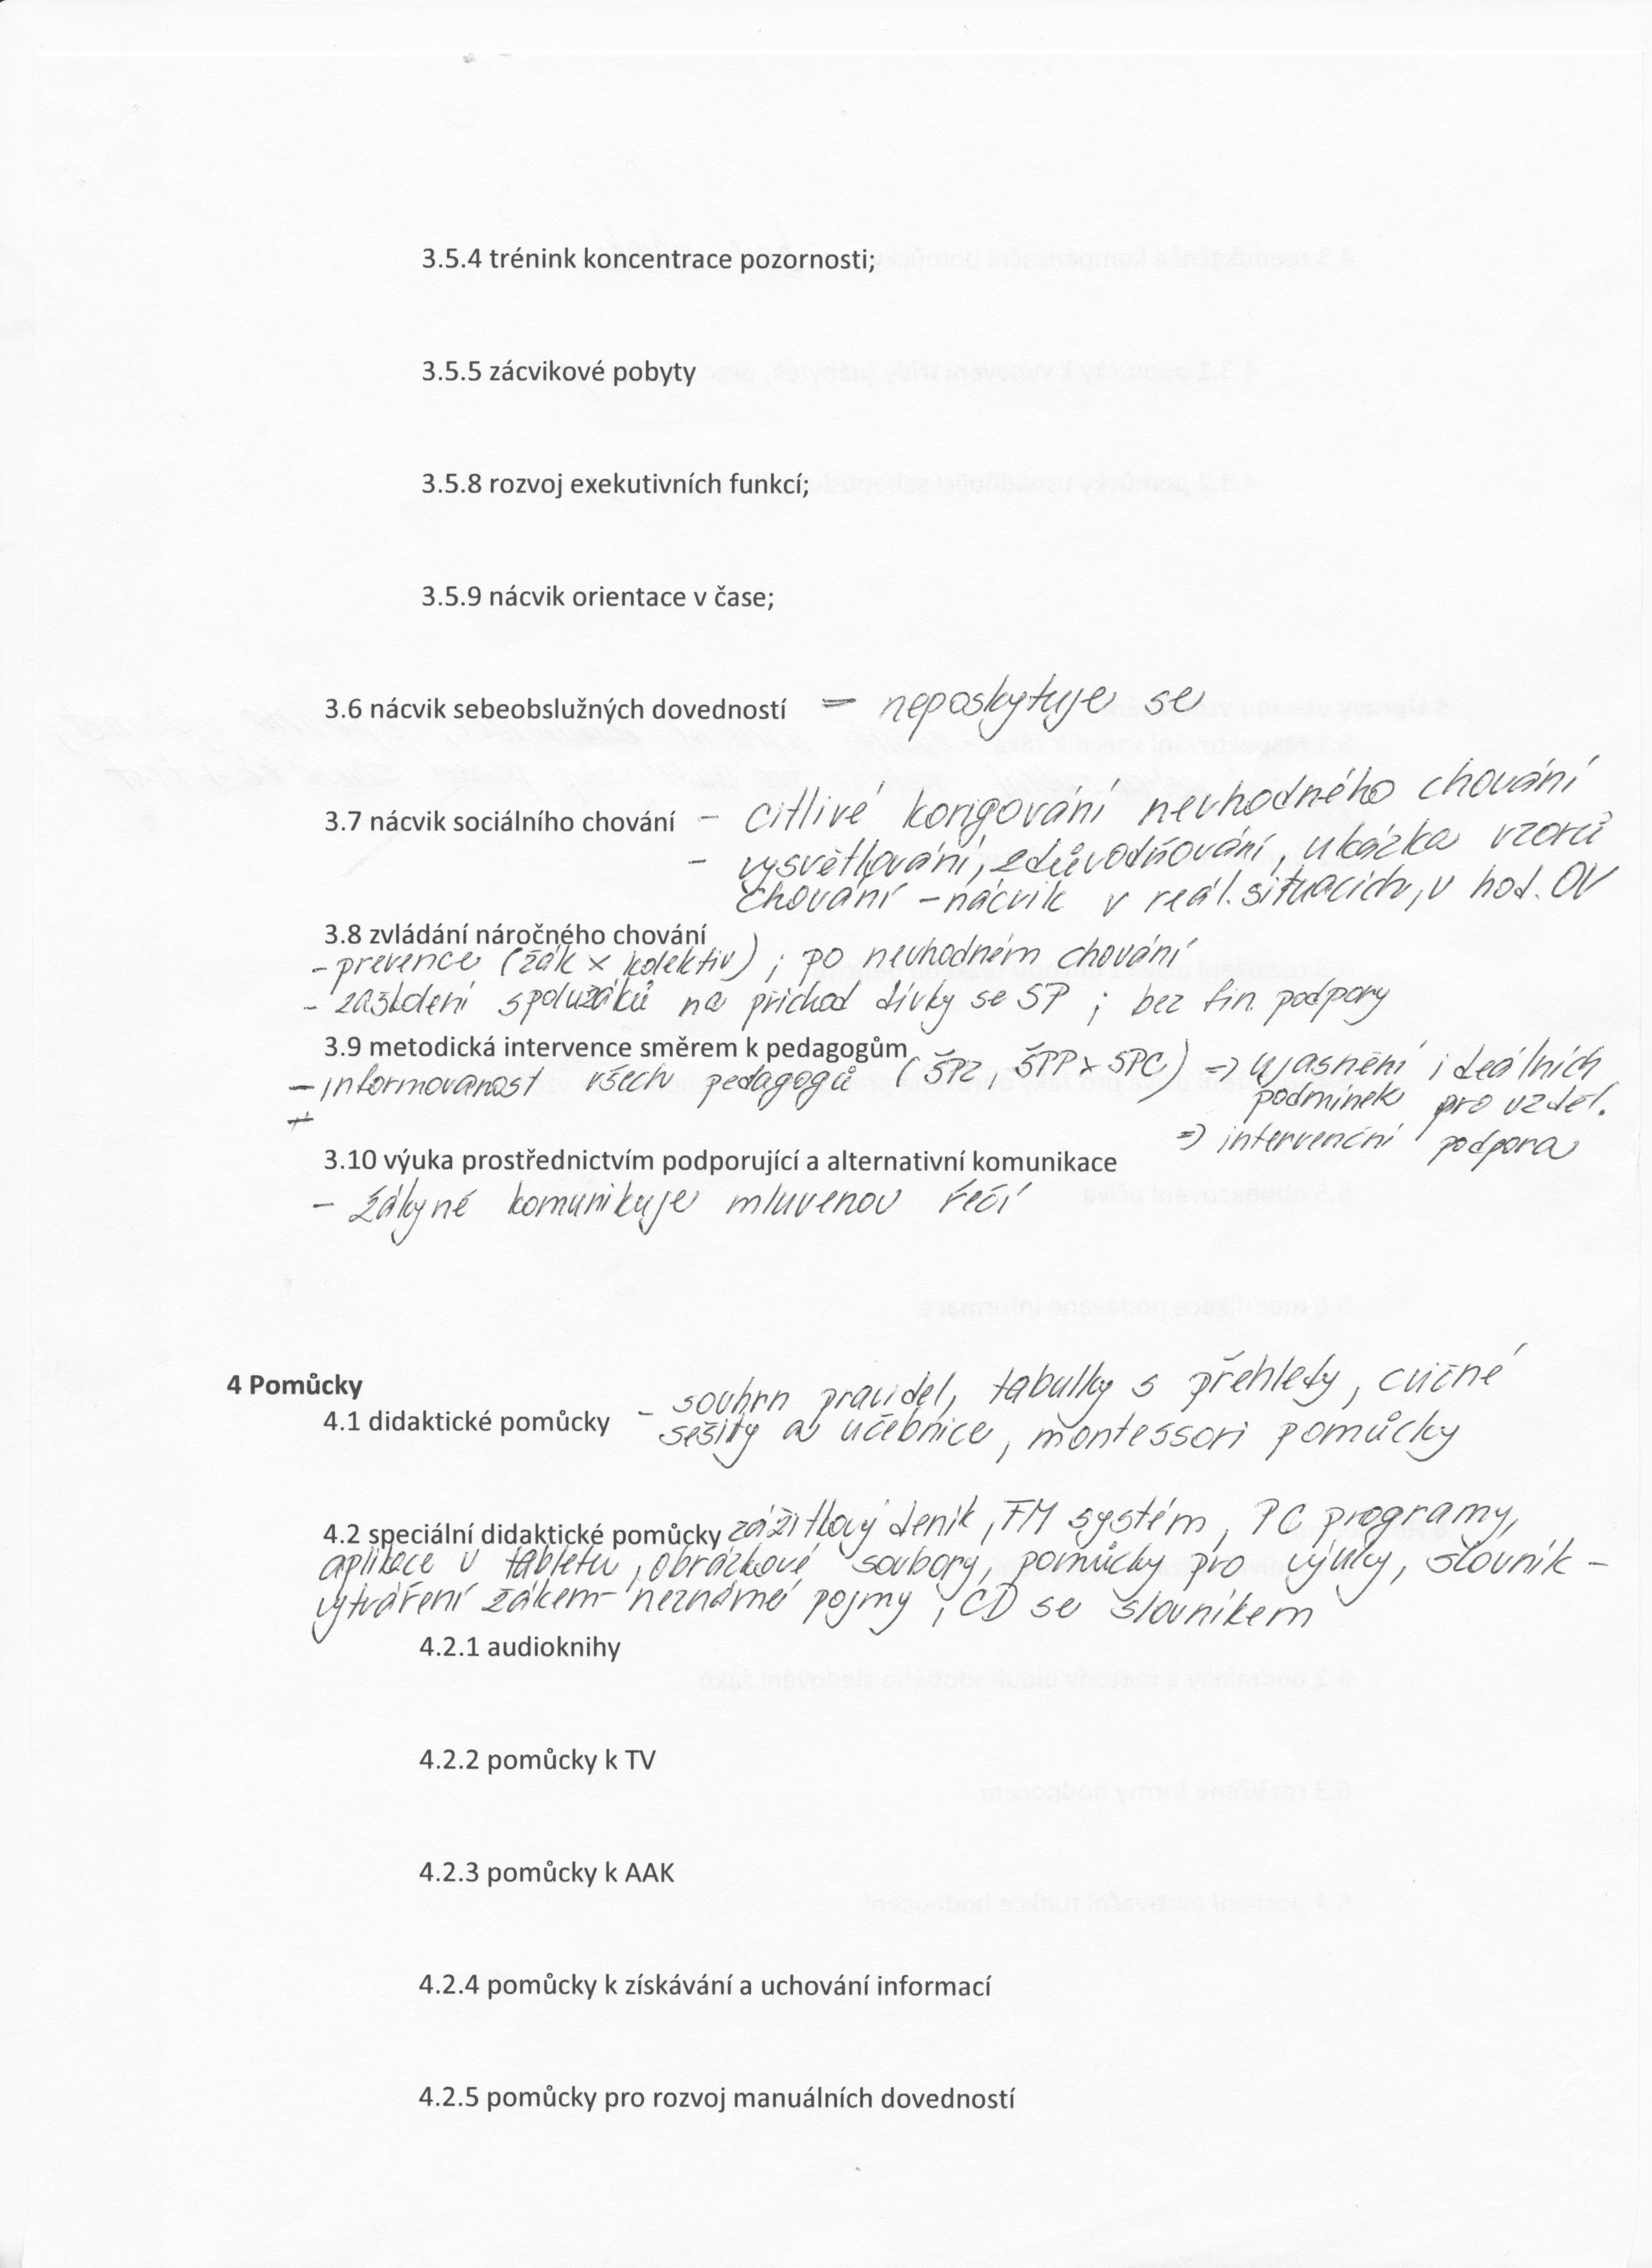 3.5.4 trénink koncentrace pozornosti;
3.5.5 zácvikové pobyty
3.5.8 rozvoj exekutivních funkcí;
3.5.9 nácvik orientace v čase;
3.6 nácvik sebeobslužných dovedností – neposkytuje se
3.7 nácvik sociálního chování – citlivé korigování nevhodného chování
– vysvětlování, zdůvodňování, ukázka vzorů
chování – nácvik v reál. situacích, v hod. OV
3.8 zvládání náročného chování
– prevence (žák x kolektiv) ; po nevhodném chování
– zaškolení spolužáků na příchod dívky se SP ; bez fin. podpory
3.9 metodická intervence směrem k pedagogům
– informovanost všech pedagogů (ŠPZ, ŠPP x SPC) => ujasnění ideálních
podmínek pro vzděl.
=> intervenční podpora
3.10 výuka prostřednictvím podporující a alternativní komunikace
– žákyně komunikuje mluvenou řečí
4 Pomůcky
4.1 didaktické pomůcky – souhrn pravidel, tabulky s přehledy, cvičné
sešity a učebnice, montessori pomůcky
4.2 speciální didaktické pomůcky zážitkový deník, FM systém, PC programy,
aplikace v tabletu, obrázkové soubory, pomůcky pro výuky, slovník –
vytváření žákem – neznámé pojmy, CD se slovníkem
4.2.1 audioknihy
4.2.2 pomůcky k TV
4.2.3 pomůcky k AAK
4.2.4 pomůcky k získávání a uchování informací
4.2.5 pomůcky pro rozvoj manuálních dovedností